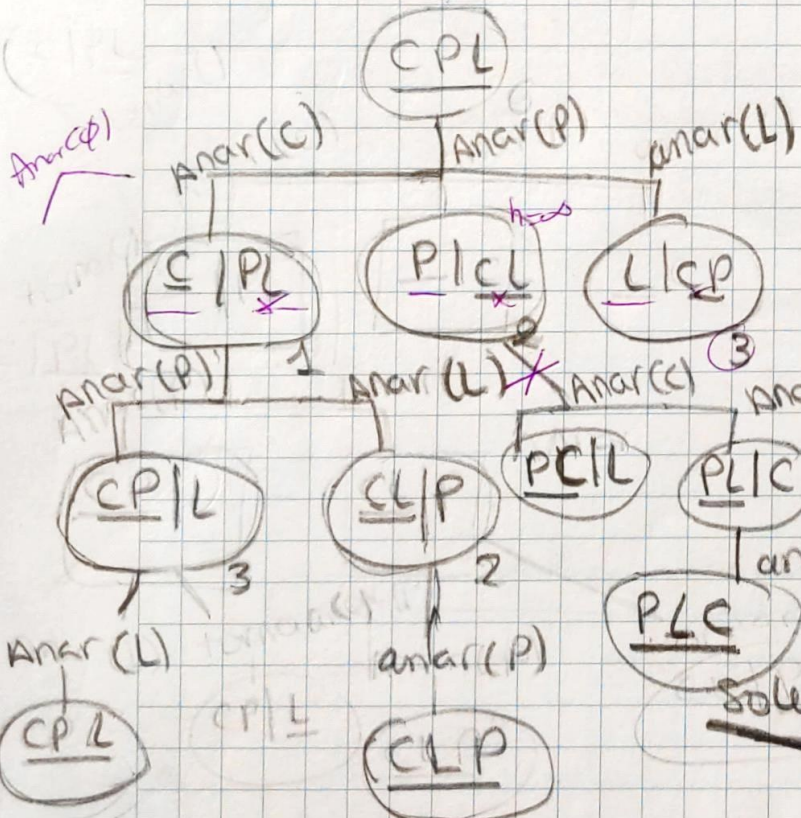 CPL
Anar(C) Anar(P) anar(L)
Anar(φ)
h=∞
C | PL P | CL L | CP
1 2 3
Anar(P) Anar(L) Anar(C)
CP | L CL | P PC | L PL | C
3 2
Anar(L) anar(P)
PLC
CPL CP | L CLP